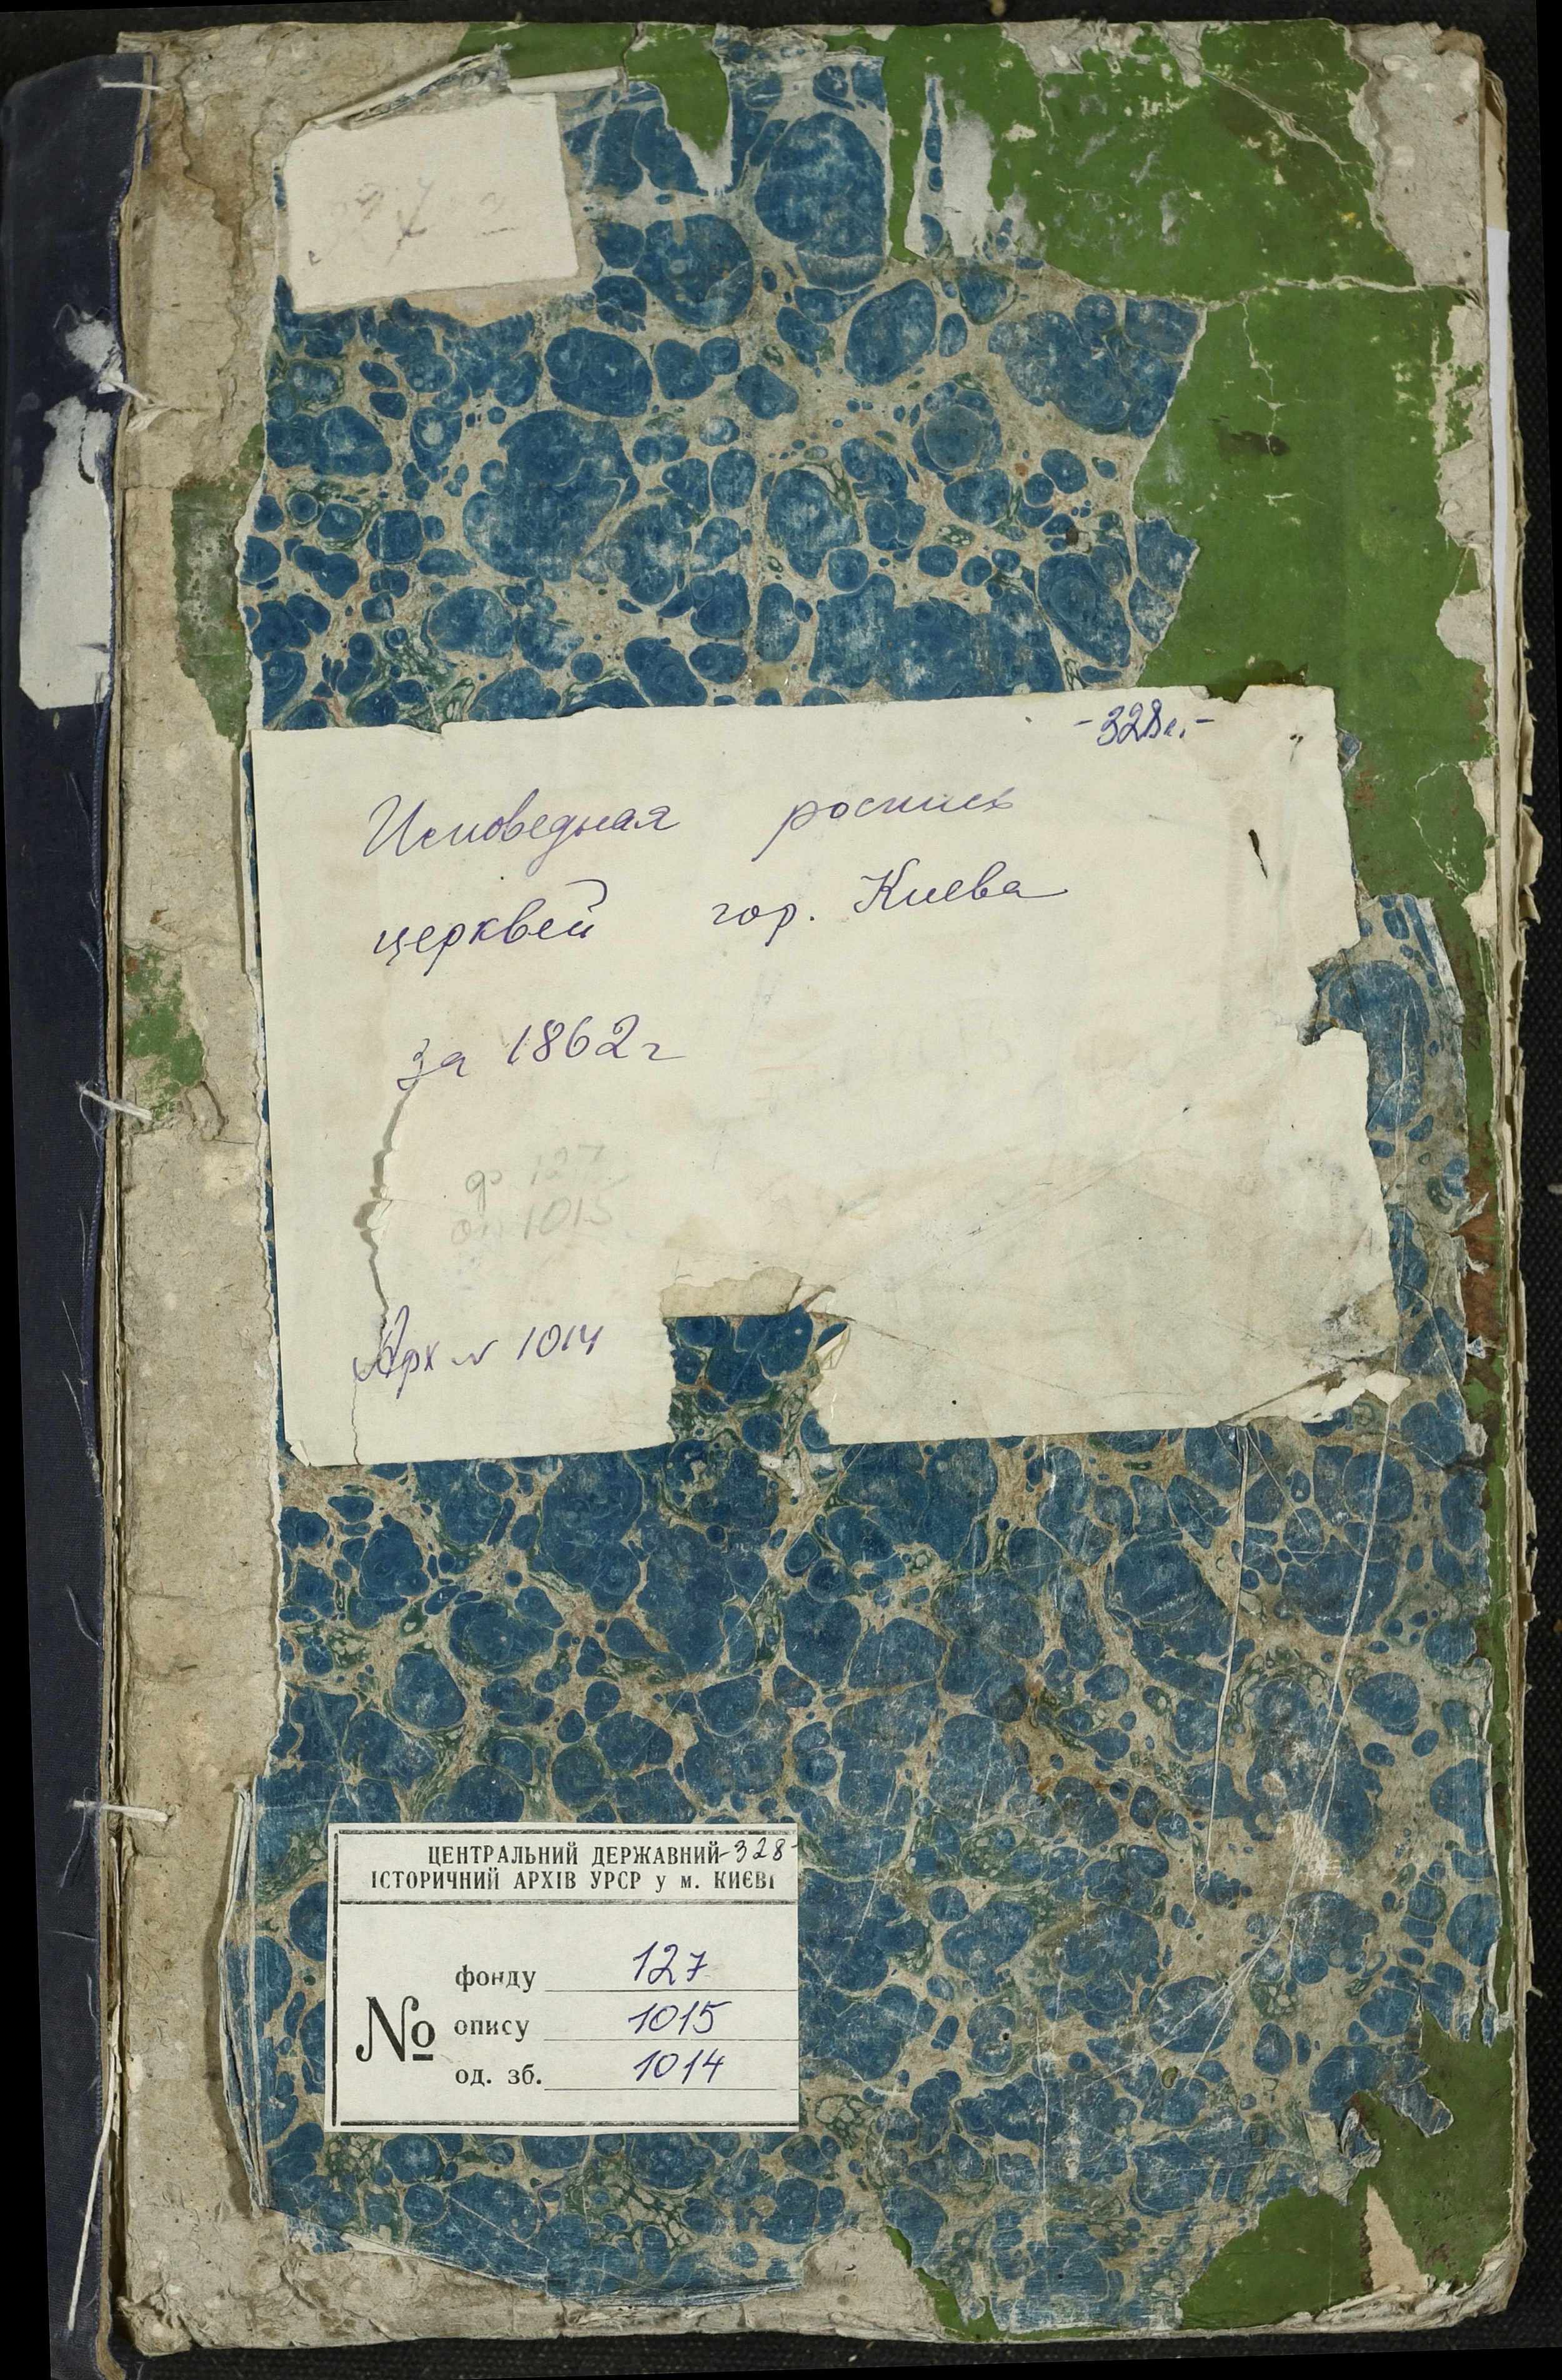 -328л.-
Исповедная роспись
церквей гор. Киева
за 1862г
ф 127
оп 1015
Арх № 1014
ЦЕНТРАЛЬНИЙ ДЕРЖАВНИЙ -328-
ІСТОРИЧНИЙ АРХІВ УРСР у м. КИЄВІ
фонду 127
№ опису 1015
од. зб. 1014